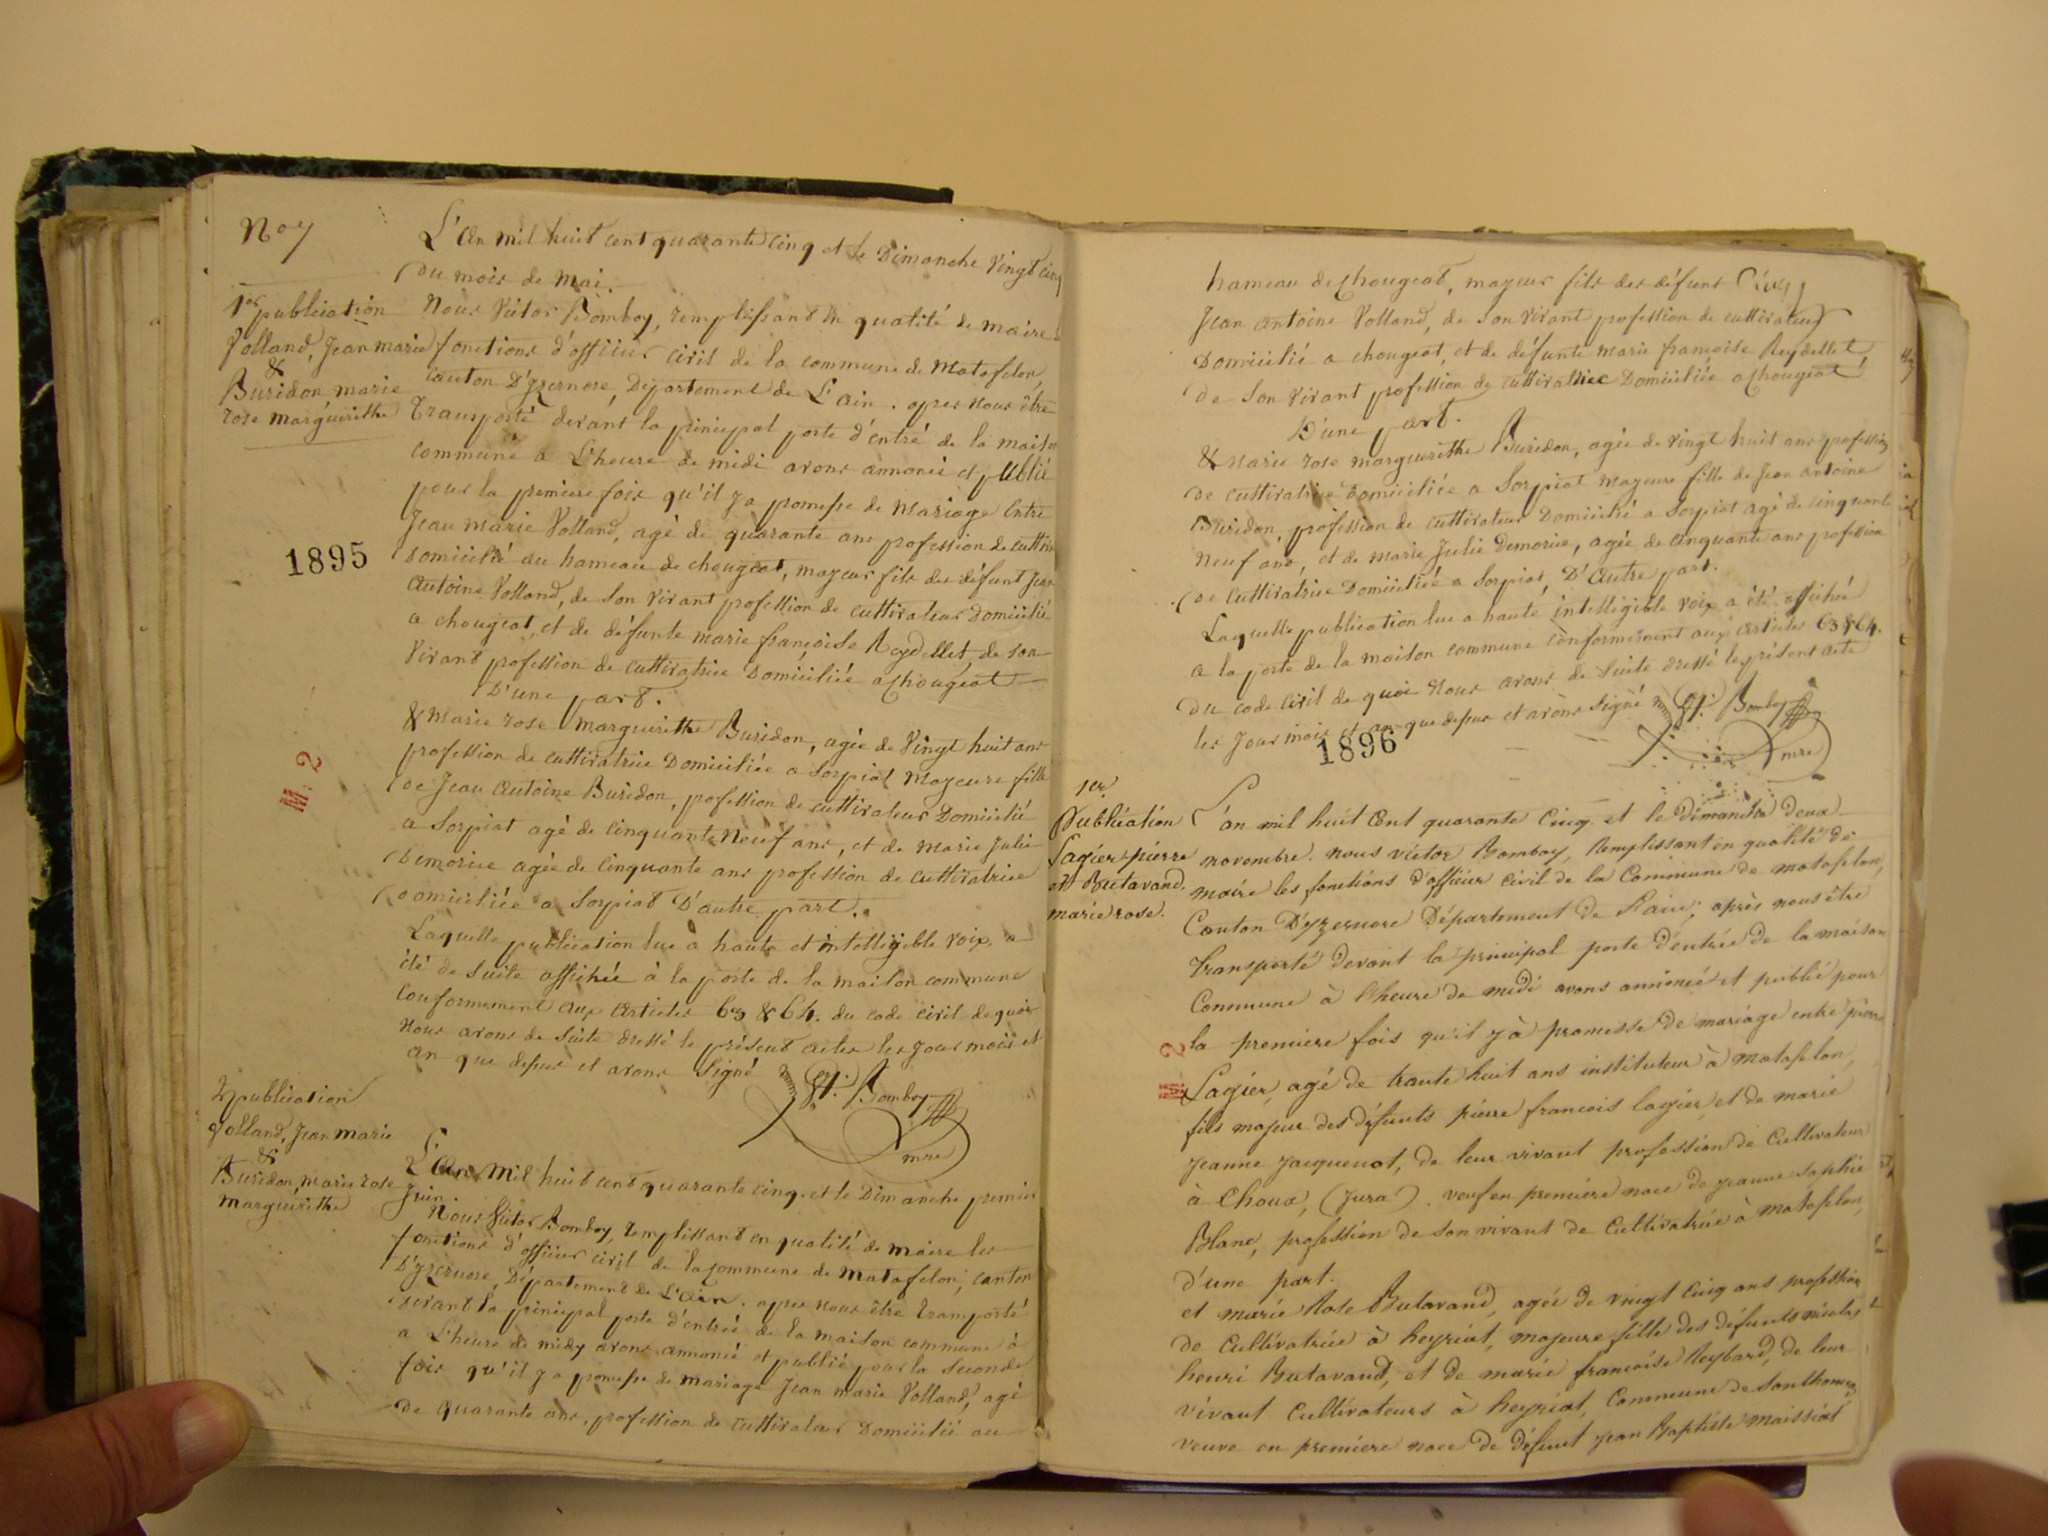 No 7
L'an mil huit cent quarante cinq et le Dimanche Vingt cinq
du mois de mai.
1er publication
Volland, Jean marie
&
Buridon, marie
rose marguerithe
Nous Victor Bomboy, remplissant en qualité de maire les
fonctions d'officier civil de la commune de Matafelon,
canton D'yzernore, Département de L'ain. apres nous être
Transporté devant la principal porte d'entré de la maison
commune a L'heure de midi avons annoncé et publié
pour la premiere fois qu'il y a promesse de Mariage Entre
Jean marie Volland, agé de quarante ans profession de cultiv
domicilié au hameau de chougeat, mayeur fils des défunt Jean
Antoine Volland, de son vivant profession de cultivateur Domicilié
a chougeat, et de défunte marie françoise Reydellet, de son
Vivant profession de cultivatrice Domiciliée a Chougeat
D'une part.
& Marie rose marguerithe Buridon, agée de Vingt huit ans
profession de cultivatrice Domiciliée a Sorpiat Mayeure fille
de Jean Antoine Buridon, profession de cultivateur Domicilié
a Sorpiat agé de cinquante Neuf ans, et de Marie Julie
Demorice agée de cinquante ans profession de cultivatrice
domiciliée a Sorpiat D'autre part.
Laquelle publication lue a haute et intelligible voix, a
été de suite affichée à la porte de la maison commune
conformement aux Articles 63 & 64. du code civil de quoi
nous avons de suite dressé le présent actes les jour mois et
an que depus et avons signé
Vr. Bomboy
mre
1895
M. 2
2 publication
Volland, Jean marie
&
Buridon, marie rose
marguerithe
L'an Mil huit cent quarante cinq. et le Dimanche premier
Juin.
Nous Victor Bomboy, remplissant en qualité de maire les
fonctions d'officier civil de la commune de Matafelon, canton
D'yzernore, Département de L'ain. apres nous être transporté
devant la principal porte d'entrée de la maison commune à
a L'heure de midy avons annoncé et publié pour la seconde
fois qu'il y a promesse de mariage Jean marie Volland, agé
de quarante ans, profession de cultivateur Domicilié au
hameau de Chougeat, mayeur fils des défunt
Jean Antoine Volland, de son vivant profession de cultivateur
Domicilié a chougeat, et de défunte marie françoise Reydellet,
de son vivant profession de cultivatrice Domiciliée a Chougeat,
D'une part.
& marie rose marguerithe Buridon, agée de vingt huit ans profession
de cultivatrice domiciliée a Sorpiat mayeure fille de Jean antoine
Buridon, profession de cultivateur Domicilié a Sorpiat agé de cinquante
Neuf ans, et de marie Julie Demorice, agée de cinquante ans profession
de cultivatrice Domiciliée a Sorpiat, D'Autre part.
Laquelle publication lue a haute intelligible voix a été affichée
a la porte de la maison commune conformement aux articles 63 & 64.
du code civil de quoi nous avons de suite dressé le présent acte
les jour mois et an que depus et avons signé
Vr. Bomboy
mre
1896
1er
Publication
Lagier pierre
et Butavand.
marie rose.
L'an mil huit cent quarante cinq et le dimanche deux
novembre. nous victor Bomboy, Remplissant en qualité de
maire les fonctions d'officier civil de la Commune de matafelon,
Canton D'yzernore Département de l'ain; après nous être
transporté devant la principal porte d'entrée de la maison
Commune à l'heure de midi avons annoncé et publié pour
la premiere fois qu'il y à promesse de mariage entre pierre
Lagier, agé de trante huit ans instituteur à matafelon,
fils majeur des défunts pierre francois lagier, et de marie
jeanne jacquenot, de leur vivant profession de Cultivateur
à Choux, (Jura). veuf en première noce de jeanne sophie
Blanc, profession de son vivant de Cultivatrice à matafelon,
d'une part.
et marie Rose Butavand, agée de vingt cinq ans profession
de Cultivatrice à heyriat, majeure fille des défunts nicolas
henri Butavand, et de marie francoise Reybard, de leur
vivant Cultivateurs à heyriat, Commune de Sonthonnax,
veuve en premiere noce de défunt jean Baptiste Maissiat
M. 2